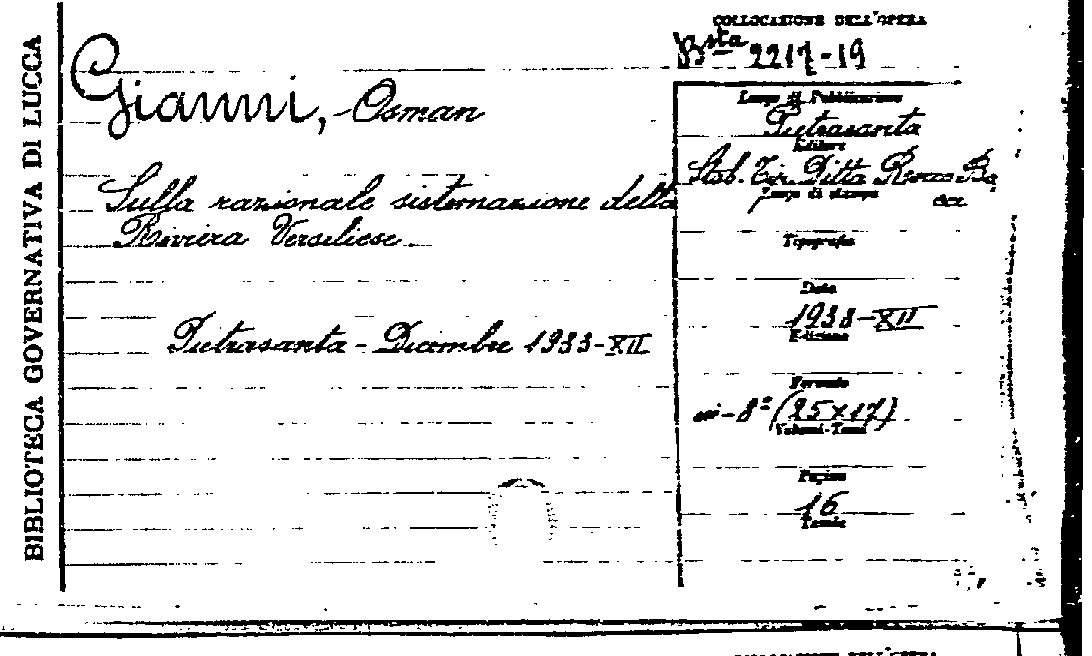 BIBLIOTECA GOVERNATIVA DI LUCCA
COLLOCAZIONE DELL'OPERA
Bsta 2217-19
Gianni, Osman
Sulla razionale sistemazione della
Riviera Versiliese
Pietrasanta - Dicembre 1933-XII
Luogo di Pubblicazione
Pietrasanta
Editore
Stab. Tip. Ditta Rocco Ba
Luogo di stampa
Tipografia
Data
1933-XII
Edizione
Formato
in-8° (25x17)
Volumi-Tomi
Pagine
16
Tavole
COLLOCAZIONE DELL'OPERA